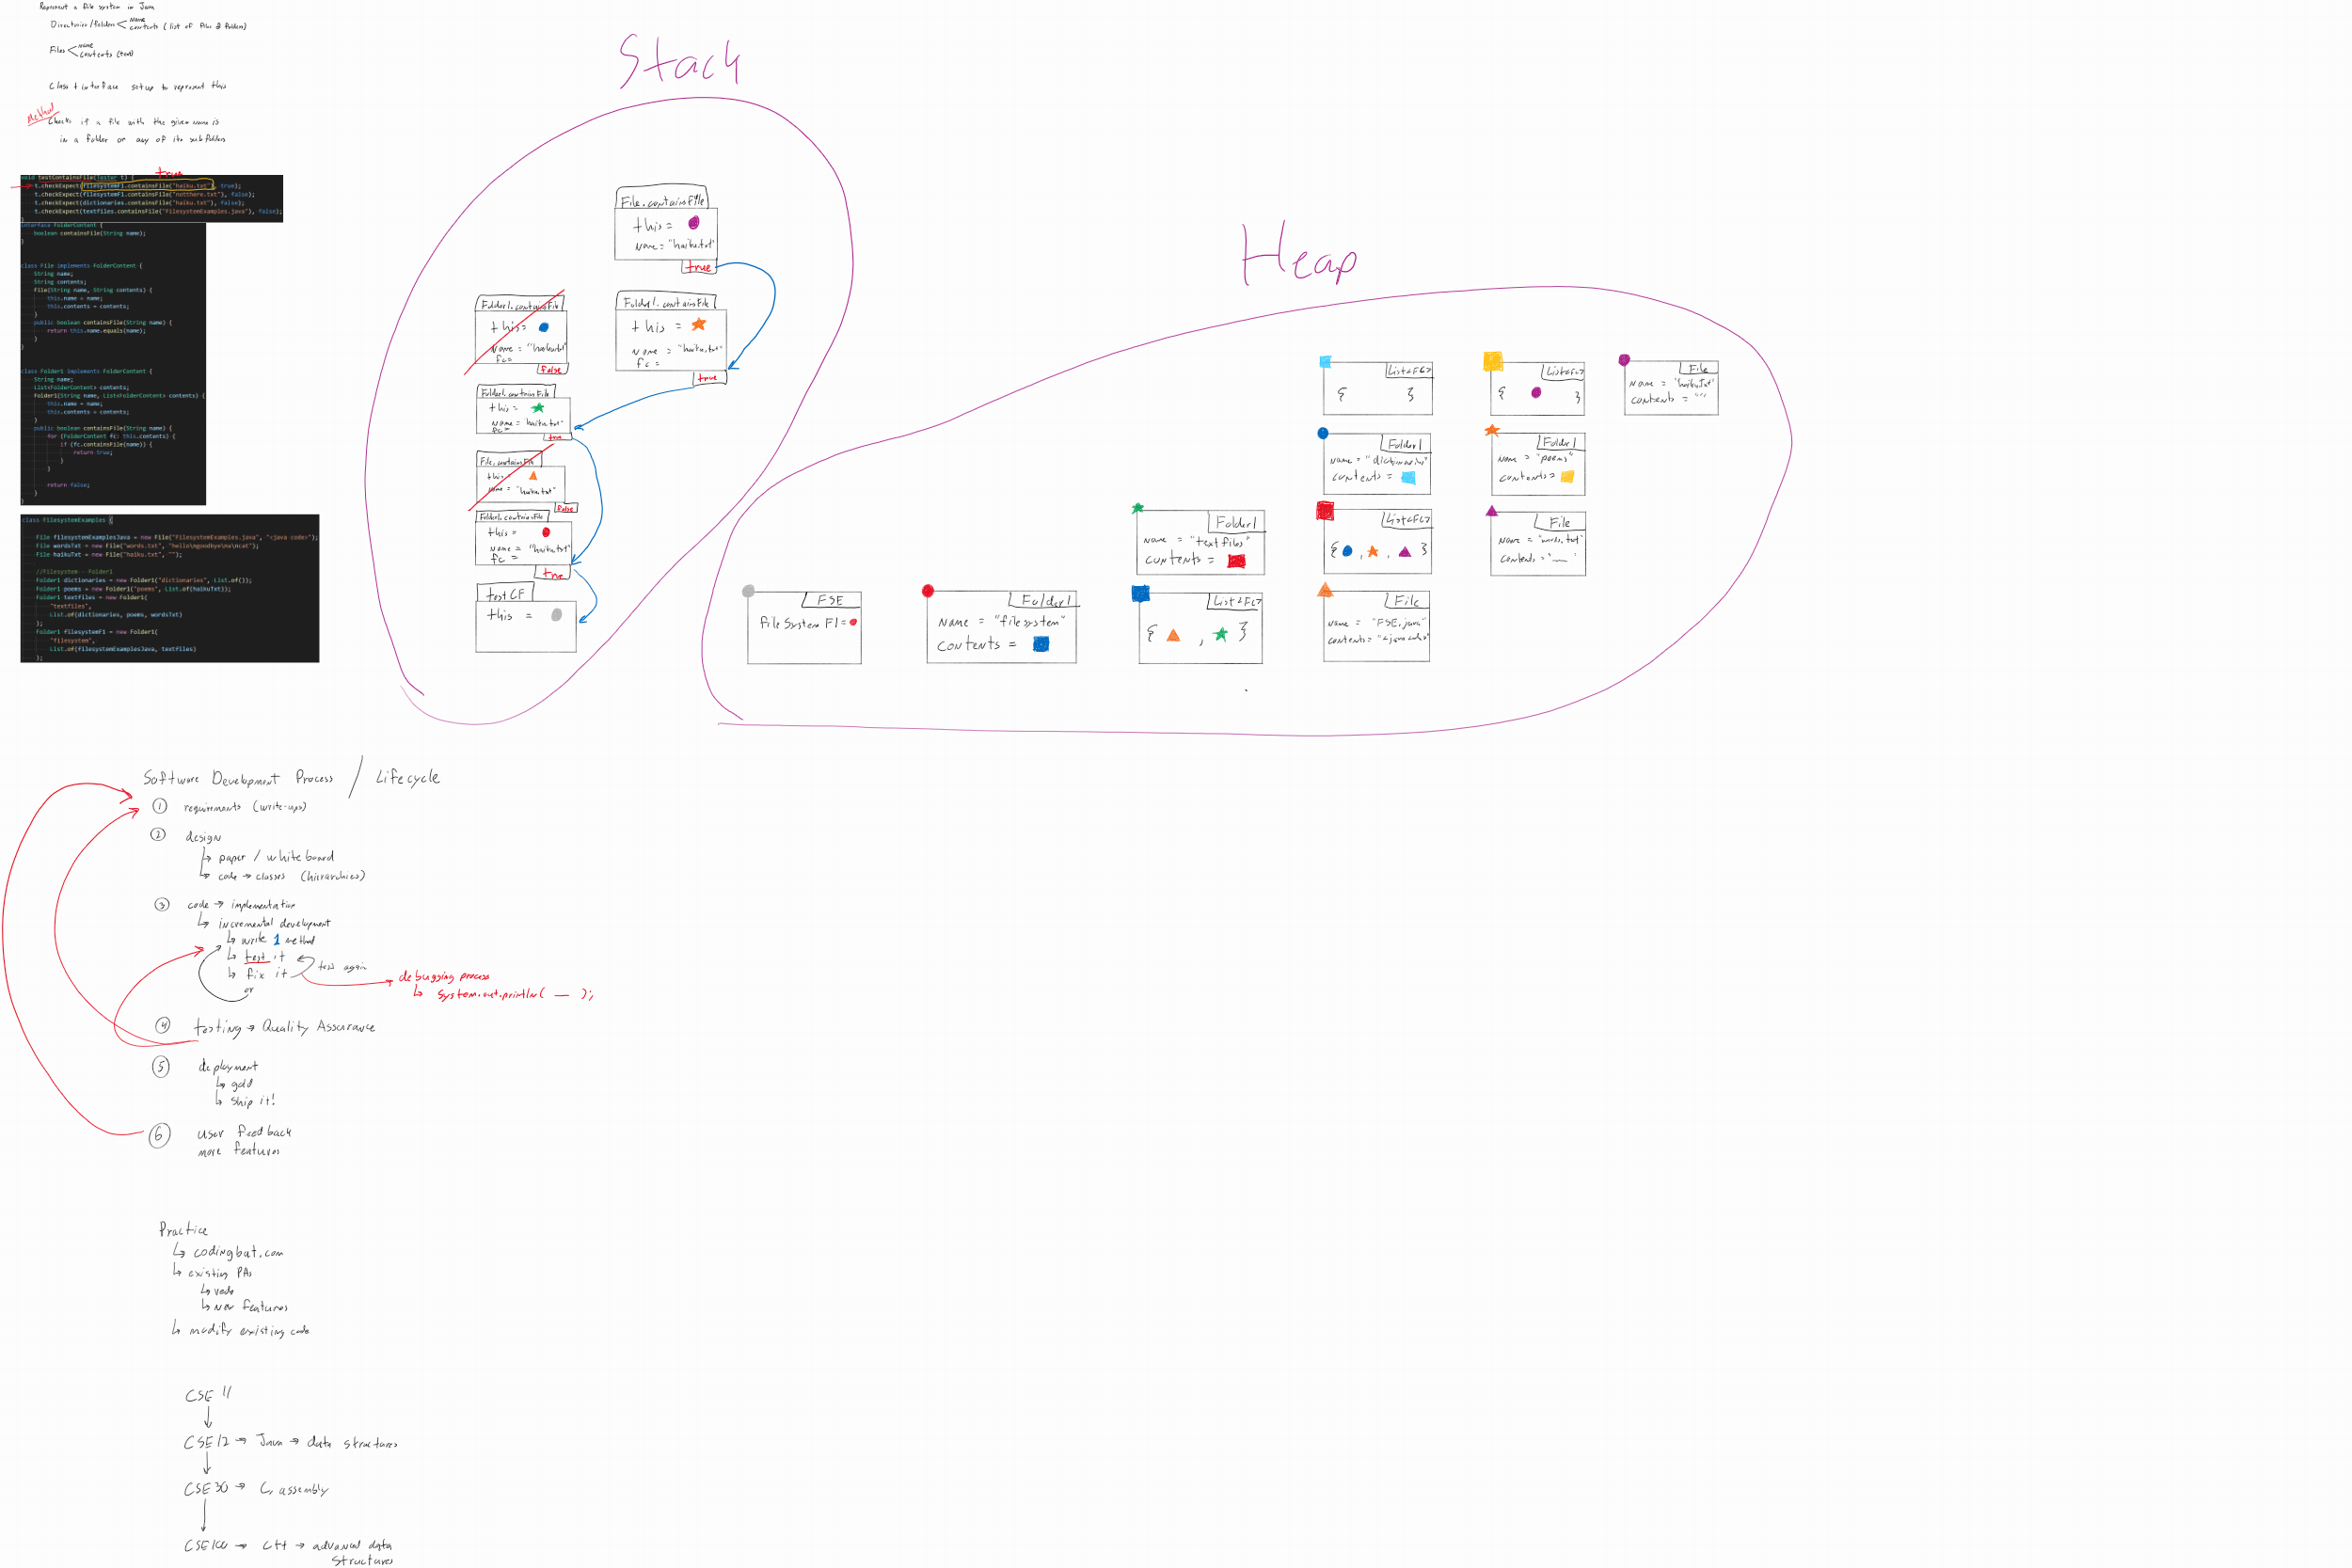 Represent a file system in Java
Directories/folders < name
contents (list of files & folders)
Files < name
contents (text)
Class + interface setup to represent this
Method
Checks if a file with the given name is
in a folder or any of its subfolders
true
void testContainsFile(Tester t) {
t.checkExpect(filesystemF1.containsFile("haiku.txt"), true);
t.checkExpect(filesystemF1.containsFile("notthere.txt"), false);
t.checkExpect(dictionaries.containsFile("haiku.txt"), false);
t.checkExpect(textfiles.containsFile("FilesystemExamples.java"), false);
}
interface FolderContent {
boolean containsFile(String name);
}
class File implements FolderContent {
String name;
String contents;
File(String name, String contents) {
this.name = name;
this.contents = contents;
}
public boolean containsFile(String name) {
return this.name.equals(name);
}
}
class Folder1 implements FolderContent {
String name;
List<FolderContent> contents;
Folder1(String name, List<FolderContent> contents) {
this.name = name;
this.contents = contents;
}
public boolean containsFile(String name) {
for (FolderContent fc: this.contents) {
if (fc.containsFile(name)) {
return true;
}
}
return false;
}
}
class FilesystemExamples {
File filesystemExamplesJava = new File("FilesystemExamples.java", "<java code>");
File wordsTxt = new File("words.txt", "hello\ngoodbye\na\ncat");
File haikuTxt = new File("haiku.txt", "");
//Filesystem - Folder1
Folder1 dictionaries = new Folder1("dictionaries", List.of());
Folder1 poems = new Folder1("poems", List.of(haikuTxt));
Folder1 textfiles = new Folder1(
"textfiles",
List.of(dictionaries, poems, wordsTxt)
);
Folder1 filesystemF1 = new Folder1(
"filesystem",
List.of(filesystemExamplesJava, textfiles)
);
Stack
File.containsFile
this =
name = "haiku.txt"
true
Folder1.containsFile
this =
name = "haiku.txt"
fc =
false
Folder1.containsFile
this =
name = "haiku.txt"
fc =
true
Folder1.containsFile
this =
name = "haiku.txt"
fc =
true
File.containsFile
this =
name = "haiku.txt"
false
Folder1.containsFile
this =
name = "haiku.txt"
fc =
true
testCF
this =
Heap
List<FC>
{ }
List<FC>
{ }
File
name = "haiku.txt"
contents = ""
Folder1
name = "dictionaries"
contents =
Folder1
name = "poems"
contents =
Folder1
name = "textfiles"
contents =
List<FC>
{ , , }
File
name = "words.txt"
contents = "___"
FSE
fileSystemF1 =
Folder1
name = "filesystem"
contents =
List<FC>
{ , }
File
name = "FSE.java"
contents = "<java code>"
Software Development Process / Lifecycle
1 requirements (write-ups)
2 design
↳ paper / whiteboard
↳ code → classes (hierarchies)
3 code → implementation
↳ incremental development
↳ write 1 method
↳ test it
↳ fix it
test again
or
debugging process
↳ System.out.println( __ );
4 testing → Quality Assurance
5 deployment
↳ gold
↳ ship it!
6 user feedback
more features
Practice
↳ codingbat.com
↳ existing PAs
↳ redo
↳ new features
↳ modify existing code
CSE 11
CSE12 → Java → data structures
CSE30 → C, assembly
CSE100 → C++ → advanced data
structures